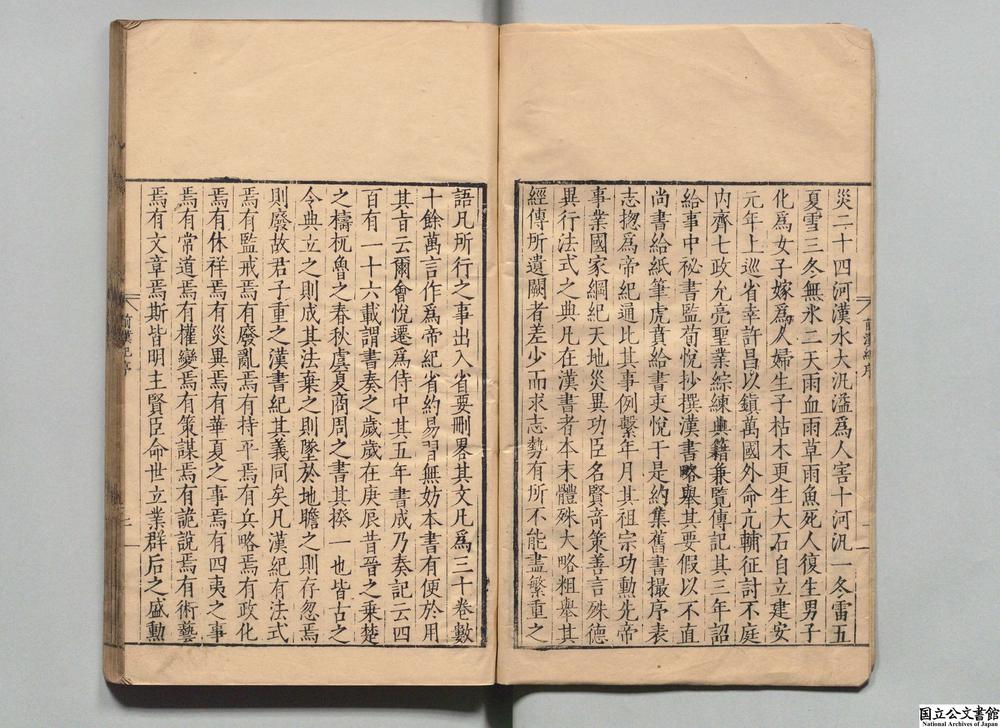 災二十四河漢水大汎滥爲人害十河汎一冬雷五
夏雪三冬無氷二天雨血雨草雨魚死人復生男子
化爲女子嫁爲人婦生子枯木更生大石自立建安
元年上巡省幸許昌以鎮萬國外命亢輔征討不庭
内齊七政允亮聖業綜練典籍兼覽傳記其三年詔
給事中祕書監荀悦抄撰漢書略舉其要假以不直
尚書給紙筆虎賁給書吏悦于是約集舊書撮序表
志揔爲帝紀通比其事例繫年月其祖宗功勲先帝
事業國家綱紀天地災異功臣名賢竒策善言殊德
異行法式之典凡在漢書者本末體殊大略粗舉其
經傳所遺闕者差少而求志勢有所不能盡繁重之
前漢紀序
語凡所行之事出入省要刪畧其文凡爲三十卷數
十餘萬言作爲帝紀省約易習無妨本書有便於用
其旨云爾會悦遷爲侍中其五年書成乃奏記云四
百有一十六載謂書奏之歲歲在庚辰昔晉之乗楚
之檮杌魯之春秋虞夏商周之書其揆一也皆古之
令典立之則成其法棄之則墜於地瞻之則存忽焉
則廢故君子重之漢書紀其義同矣凡漢紀有法式
焉有監戒焉有廢亂焉有持平焉有兵略焉有政化
焉有休祥焉有災異焉有華夏之事焉有四夷之事
焉有常道焉有權變焉有策謀焉有詭說焉有術藝
焉有文章焉斯皆明主賢臣命世立業群后之盛勲
前漢紀序
二
国立公文書館
National Archives of Japan